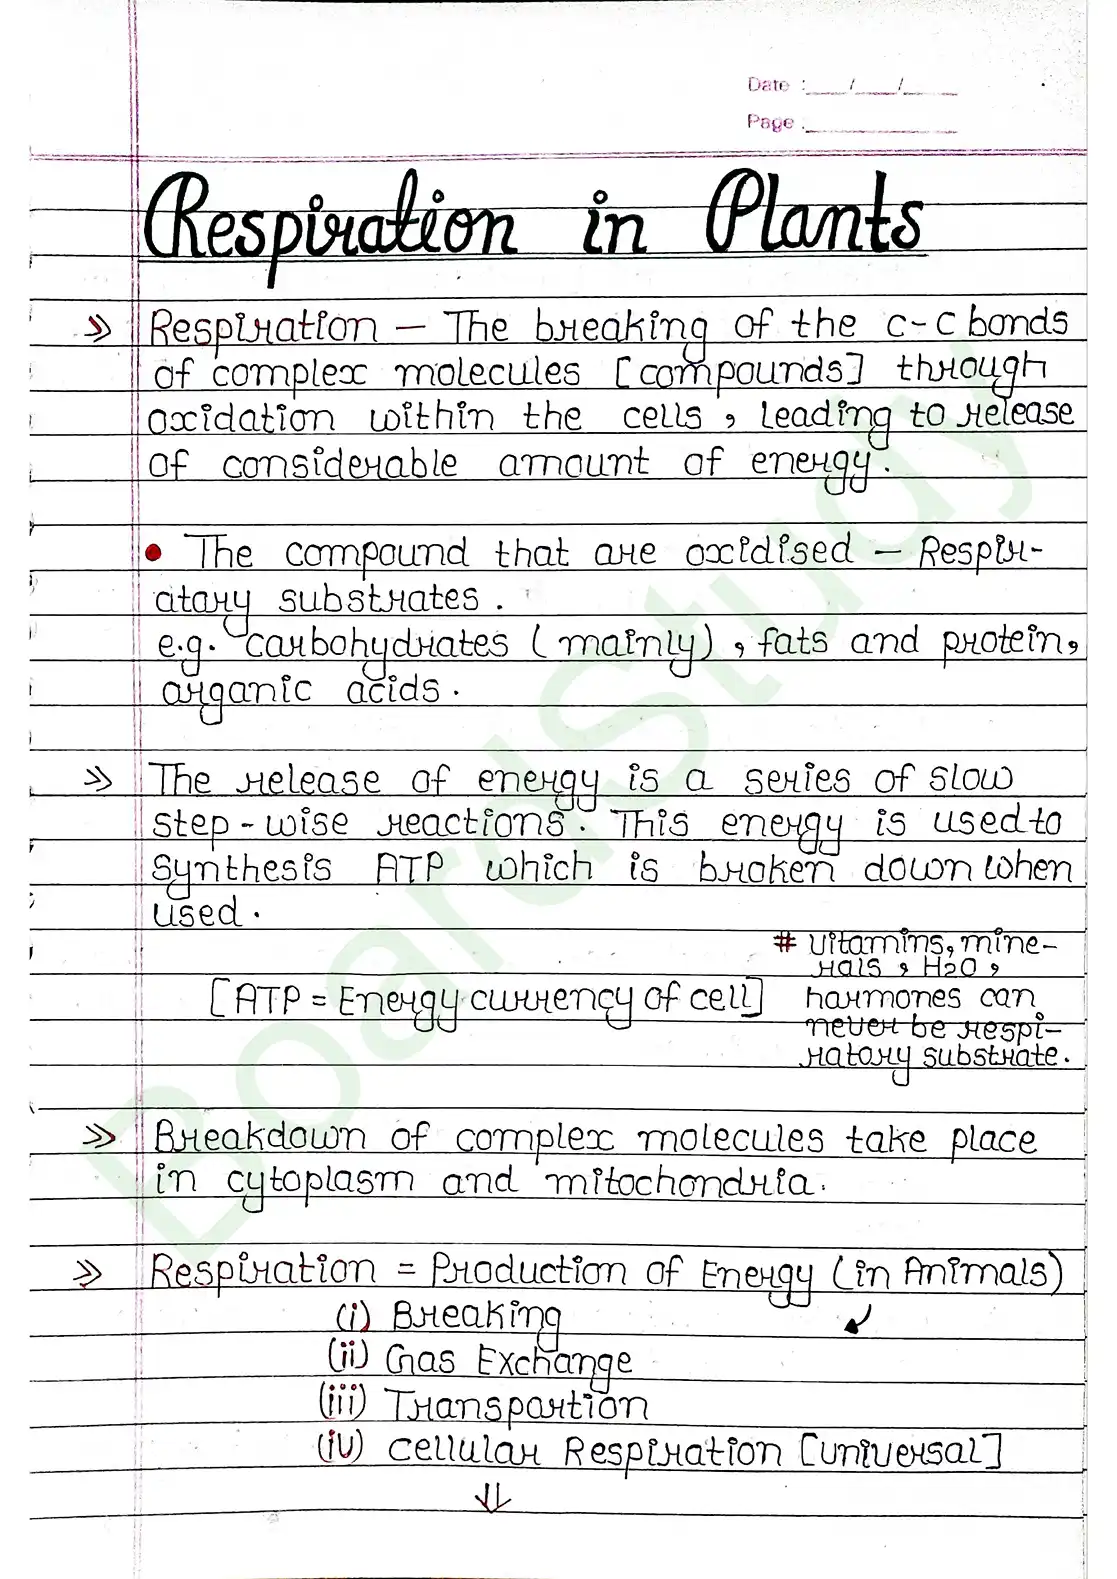 Date : ___/___/____
Page : ____________
Respiration in Plants
» Respiration – The breaking of the c-c bonds
of complex molecules [compounds] through
oxidation within the cells, leading to release
of considerable amount of energy.
• The compound that are oxidised – Respir-
atory substrates.
e.g. carbohydrates (mainly), fats and protein,
organic acids.
» The release of energy is a series of slow
step-wise reactions. This energy is used to
synthesis ATP which is broken down when
used.
# vitamins, mine-
rals, H2O,
[ATP = Energy currency of cell] hormones can
never be respi-
ratory substrate.
» Breakdown of complex molecules take place
in cytoplasm and mitochondria.
» Respiration = Production of Energy (in Animals)
(i) Breaking
(ii) Gas Exchange
(iii) Transportion
(iv) cellular Respiration [universal]
BoardStudy